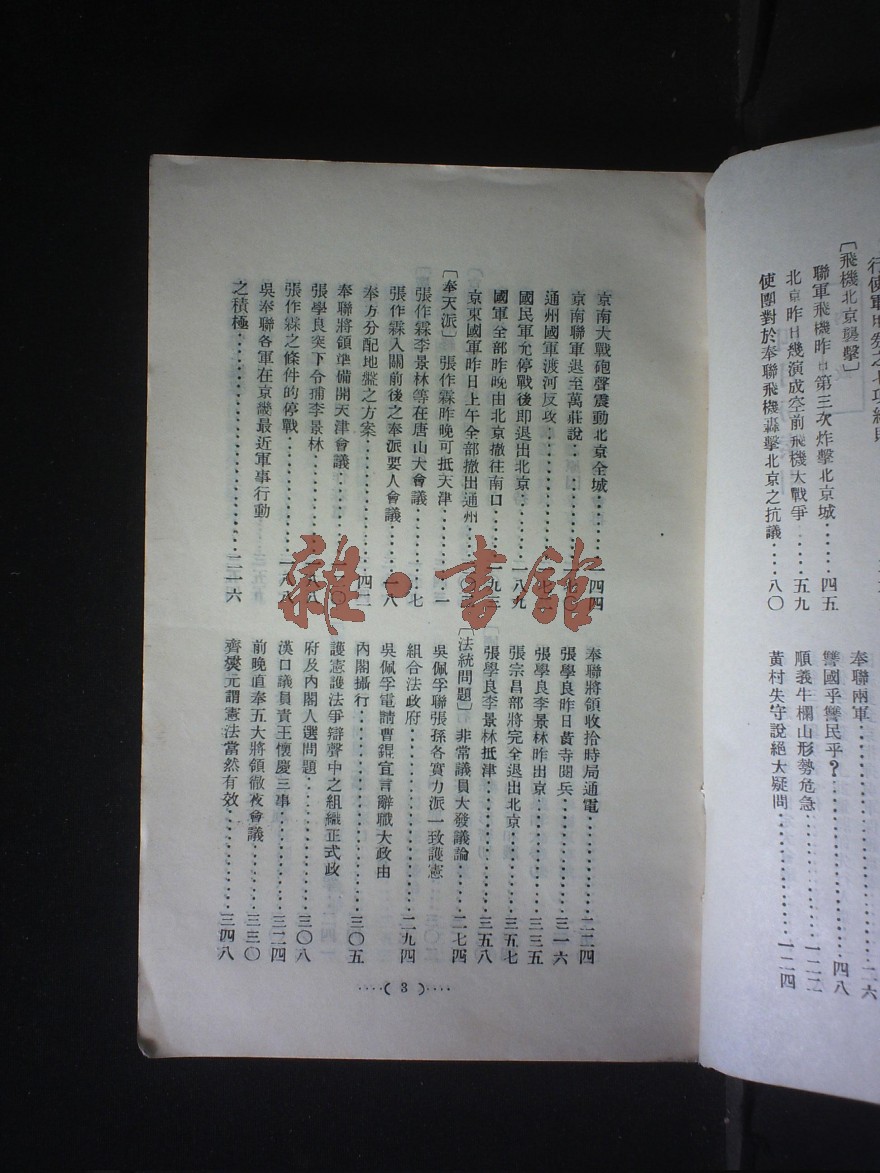 〔飛機北京襲擊〕
聯軍飛機昨日第三次炸擊北京城……四五
北京昨日幾演成空前飛機大戰爭……五九
使團對於奉聯飛機轟擊北京之抗議……八〇
奉聯兩軍……二六
讐國乎讐民乎?……四八
順義牛欄山形勢危急……一二二
黃村失守說絕大疑問……一二四
京南大戰砲聲震動北京全城……一四四
京南聯軍退至萬莊說
通州國軍渡河反攻
國民軍允停戰後即退出北京……一八九
國軍全部昨晚由北京撤往南口……一九三
京東國軍昨日上午全部撤出通州
〔奉天派〕 張作霖昨晚可抵天津……一
張作霖李景林等在唐山大會議……七
張作霖入關前後之奉派要人會議……一八
奉方分配地盤之方案……四二
奉聯將領準備開天津會議
張學良突下令捕李景林
張作霖之條件的停戰……一八八
吳奉聯各軍在京畿最近軍事行動
之積極……二一六
奉聯將領收拾時局通電……二二四
張學良昨日黃寺閱兵……三一六
張學良李景林昨出京……三三五
張宗昌部將完全退出北京……三五七
張學良李景林抵津……三五八
〔法統問題〕 非常議員大發議論……二七四
吳佩孚聯張孫各實力派一致護憲
組合法政府……二九四
吳佩孚電請曹錕宣言辭職大政由
內閣攝行……三〇五
護憲護法爭辯聲中之組織正式政
府及內閣人選問題……三〇八
漢口議員責王懷慶三事……三二四
前晚直奉五大將領徹夜會議……三三〇
齊燮元謂憲法當然有效……三四八
····( 3 )····
雜·書館